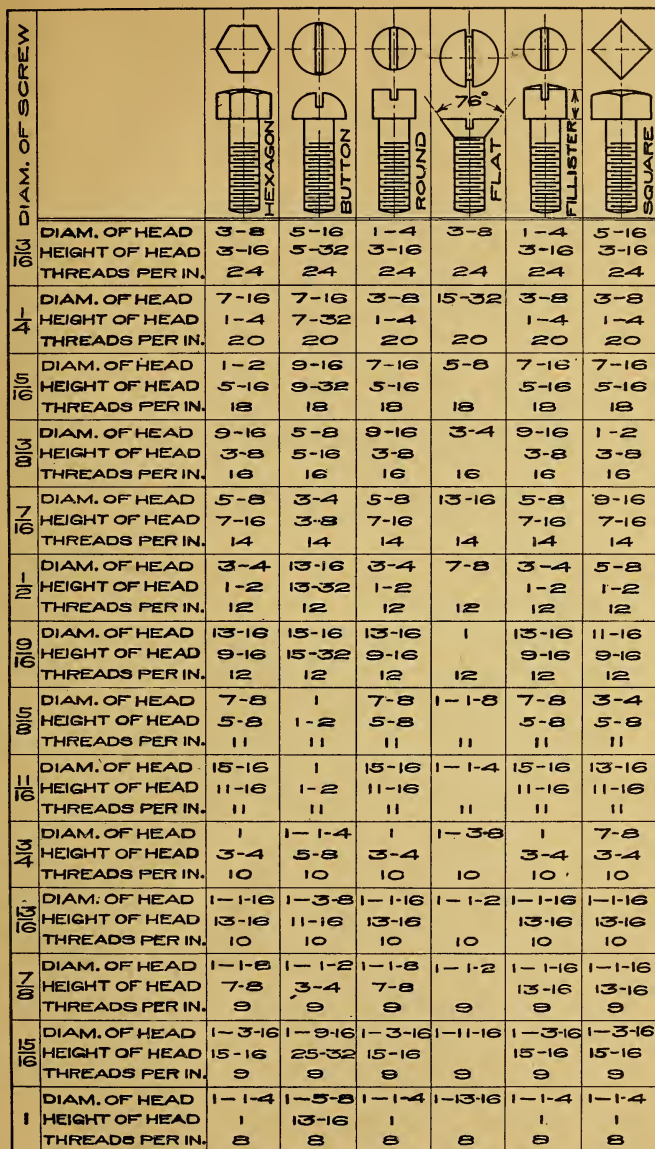 DIAM. OF SCREW
HEXAGON BUTTON ROUND 76° FLAT FILLISTER SQUARE
3/16 DIAM. OF HEAD 3-8 5-16 1-4 3-8 1-4 5-16
HEIGHT OF HEAD 3-16 5-32 3-16 3-16 3-16
THREADS PER IN. 24 24 24 24 24 24
1/4 DIAM. OF HEAD 7-16 7-16 3-8 15-32 3-8 3-8
HEIGHT OF HEAD 1-4 7-32 1-4 1-4 1-4
THREADS PER IN. 20 20 20 20 20 20
5/16 DIAM. OF HEAD 1-2 9-16 7-16 5-8 7-16 7-16
HEIGHT OF HEAD 5-16 9-32 5-16 5-16 5-16
THREADS PER IN. 18 18 18 18 18 18
3/8 DIAM. OF HEAD 9-16 5-8 9-16 3-4 9-16 1-2
HEIGHT OF HEAD 3-8 5-16 3-8 3-8 3-8
THREADS PER IN. 16 16 16 16 16 16
7/16 DIAM. OF HEAD 5-8 3-4 5-8 13-16 5-8 9-16
HEIGHT OF HEAD 7-16 3-8 7-16 7-16 7-16
THREADS PER IN. 14 14 14 14 14 14
1/2 DIAM. OF HEAD 3-4 13-16 3-4 7-8 3-4 5-8
HEIGHT OF HEAD 1-2 13-32 1-2 1-2 1-2
THREADS PER IN. 12 12 12 12 12 12
9/16 DIAM. OF HEAD 13-16 15-16 13-16 1 13-16 11-16
HEIGHT OF HEAD 9-16 15-32 9-16 9-16 9-16
THREADS PER IN. 12 12 12 12 12 12
5/8 DIAM. OF HEAD 7-8 1 7-8 1-1-8 7-8 3-4
HEIGHT OF HEAD 5-8 1-2 5-8 5-8 5-8
THREADS PER IN. 11 11 11 11 11 11
11/16 DIAM. OF HEAD 15-16 1 15-16 1-1-4 15-16 13-16
HEIGHT OF HEAD 11-16 1-2 11-16 11-16 11-16
THREADS PER IN. 11 11 11 11 11 11
3/4 DIAM. OF HEAD 1 1-1-4 1 1-3-8 1 7-8
HEIGHT OF HEAD 3-4 5-8 3-4 3-4 3-4
THREADS PER IN. 10 10 10 10 10 10
13/16 DIAM. OF HEAD 1-1-16 1-3-8 1-1-16 1-1-2 1-1-16 1-1-16
HEIGHT OF HEAD 13-16 11-16 13-16 13-16 13-16
THREADS PER IN. 10 10 10 10 10 10
7/8 DIAM. OF HEAD 1-1-8 1-1-2 1-1-8 1-1-2 1-1-16 1-1-16
HEIGHT OF HEAD 7-8 3-4 7-8 13-16 13-16
THREADS PER IN. 9 9 9 9 9 9
15/16 DIAM. OF HEAD 1-3-16 1-9-16 1-3-16 1-11-16 1-3-16 1-3-16
HEIGHT OF HEAD 15-16 25-32 15-16 15-16 15-16
THREADS PER IN. 9 9 9 9 9 9
1 DIAM. OF HEAD 1-1-4 1-5-8 1-1-4 1-13-16 1-1-4 1-1-4
HEIGHT OF HEAD 1 13-16 1 1 1
THREADS PER IN. 8 8 8 8 8 8